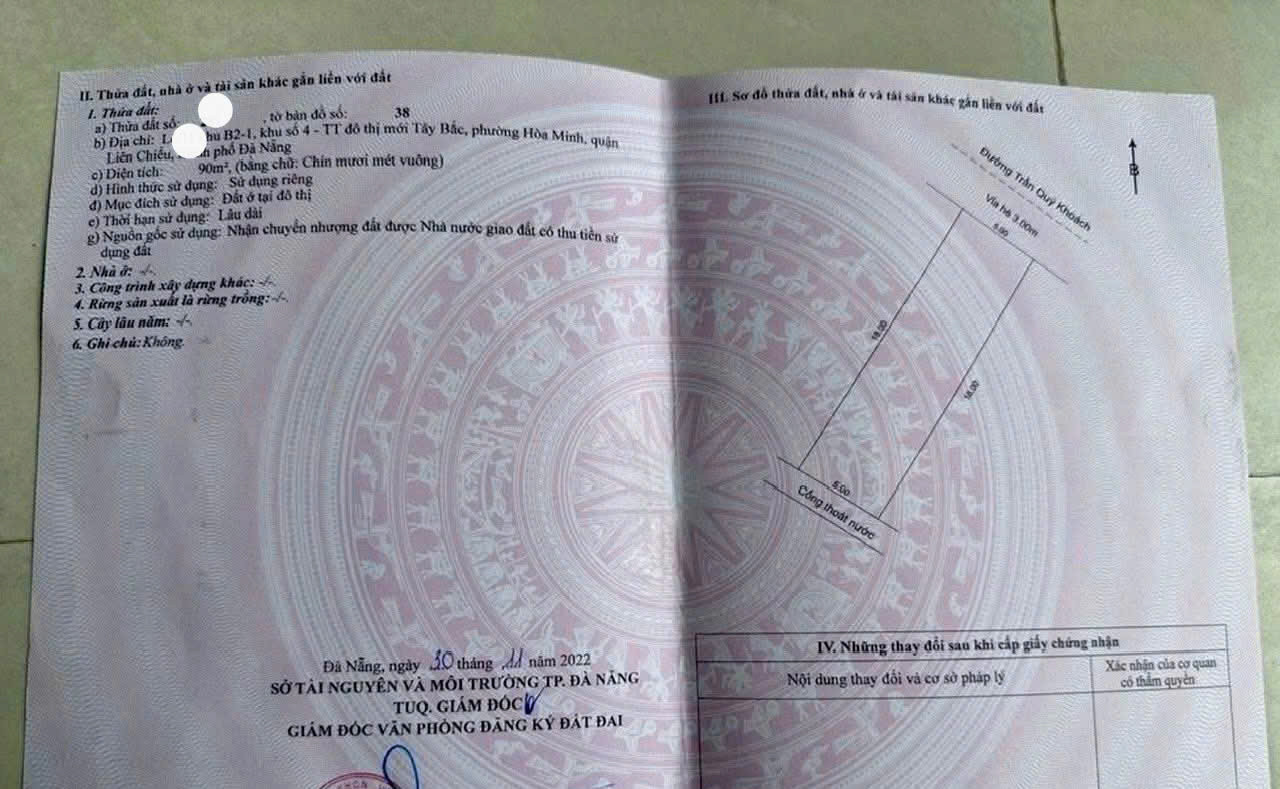 II. Thửa đất, nhà ở và tài sản khác gắn liền với đất
1. Thửa đất:
a) Thửa đất số: , tờ bản đồ số: 38
b) Địa chỉ: khu B2-1, khu số 4 - TT đô thị mới Tây Bắc, phường Hòa Minh, quận
Liên Chiểu, phố Đà Nẵng
c) Diện tích: 90m², (bằng chữ: Chín mươi mét vuông)
d) Hình thức sử dụng: Sử dụng riêng
đ) Mục đích sử dụng: Đất ở tại đô thị
e) Thời hạn sử dụng: Lâu dài
g) Nguồn gốc sử dụng: Nhận chuyển nhượng đất được Nhà nước giao đất có thu tiền sử
dụng đất
2. Nhà ở: -/-.
3. Công trình xây dựng khác: -/-.
4. Rừng sản xuất là rừng trồng: -/-.
5. Cây lâu năm: -/-.
6. Ghi chú: Không.
Đà Nẵng, ngày 30 tháng 11 năm 2022
SỞ TÀI NGUYÊN VÀ MÔI TRƯỜNG TP. ĐÀ NẴNG
TUQ. GIÁM ĐỐC
GIÁM ĐỐC VĂN PHÒNG ĐĂNG KÝ ĐẤT ĐAI
III. Sơ đồ thửa đất, nhà ở và tài sản khác gắn liền với đất
B
Đường Trần Quý Khoách
Vỉa hè 3.00m
5.00
18.00
18.00
5.00
Cống thoát nước
IV. Những thay đổi sau khi cấp giấy chứng nhận
Nội dung thay đổi và cơ sở pháp lý
Xác nhận của cơ quan
có thẩm quyền